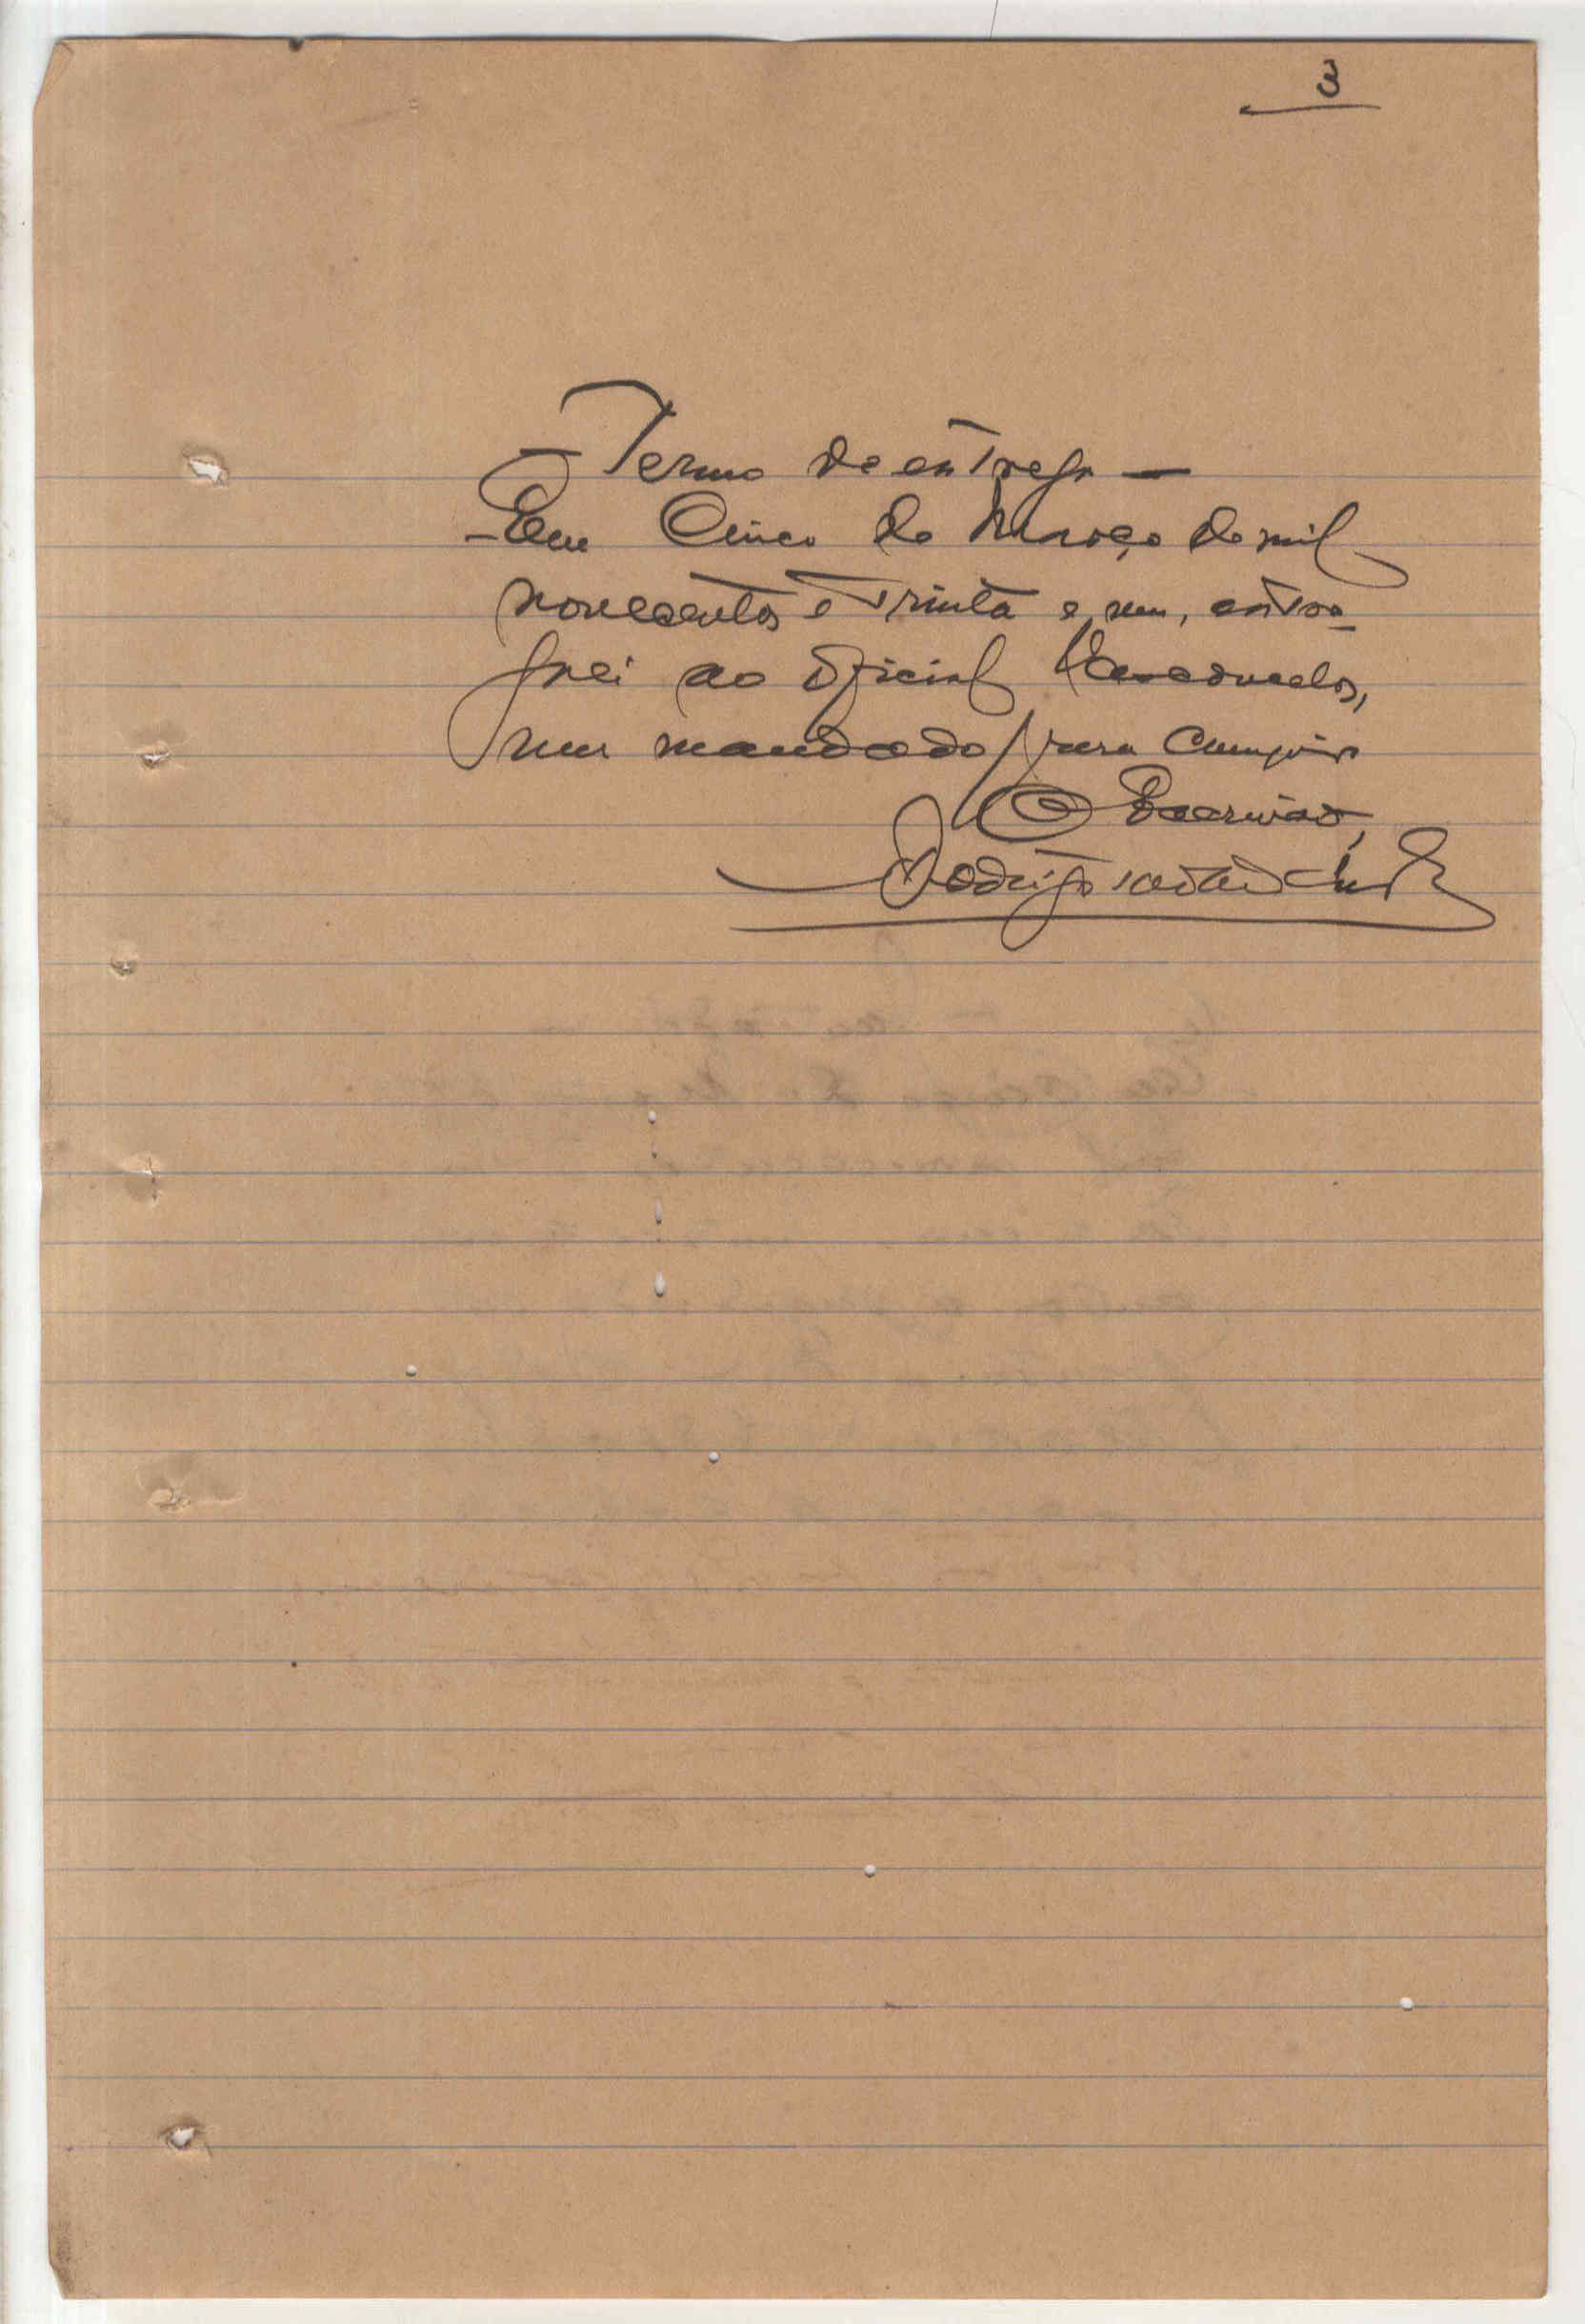 3
- Termo de entrega -
- Em Cinco de Março de mil
novecentos e Trinta e um, entre-
guei ao oficial Vasconcelos,
um mandado para cumprir
O Escrivão,
Rodrigo